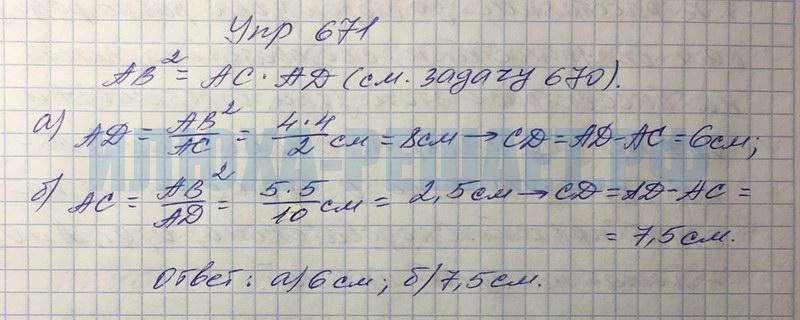 Упр 671
AB² = AC · AD (см. задачу 670).
а) AD = AB²/AC = 4·4/2 см = 8см → CD = AD-AC = 6см;
б) AC = AB²/AD = 5·5/10 см = 2,5см → CD = AD-AC =
= 7,5см.
Ответ: а) 6см; б) 7,5см.